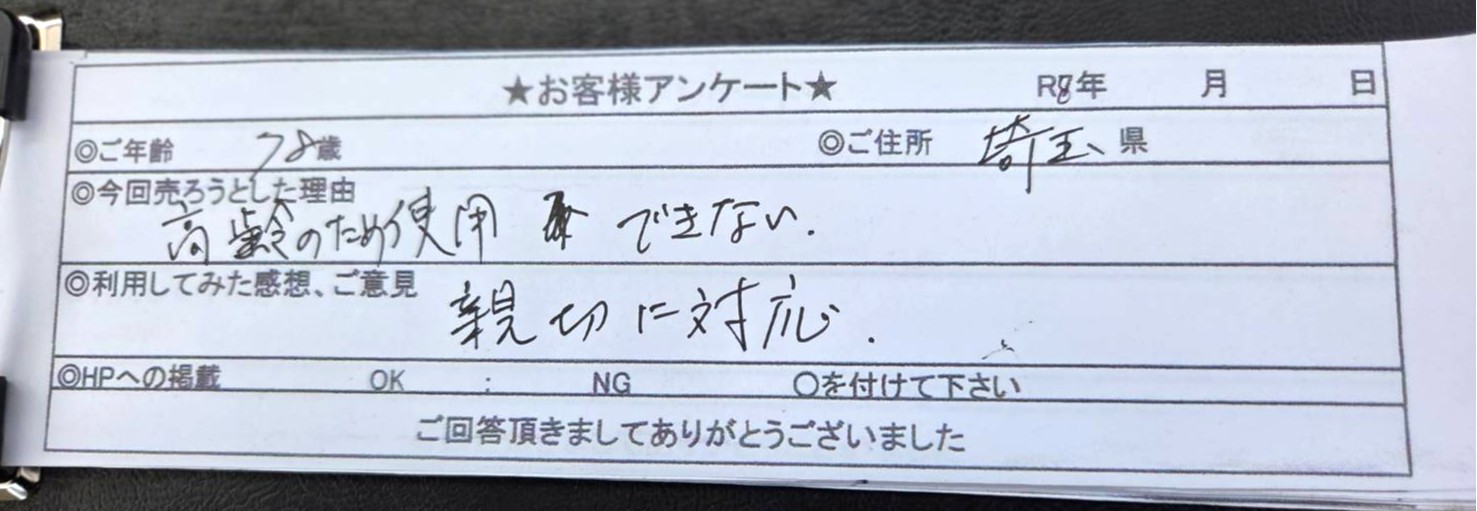 ★お客様アンケート★ R8年 月 日
◎ご年齢 78歳 ◎ご住所 埼玉県
◎今回売ろうとした理由
高齢のため使用 できない.
◎利用してみた感想、ご意見
親切に対応.
◎HPへの掲載 OK : NG 〇を付けて下さい
ご回答頂きましてありがとうございました